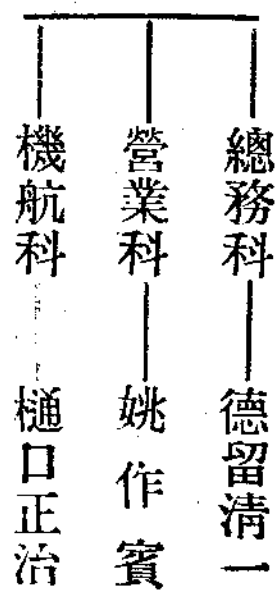 總務科 德留清一
營業科 姚作賓
機航科 樋口正治